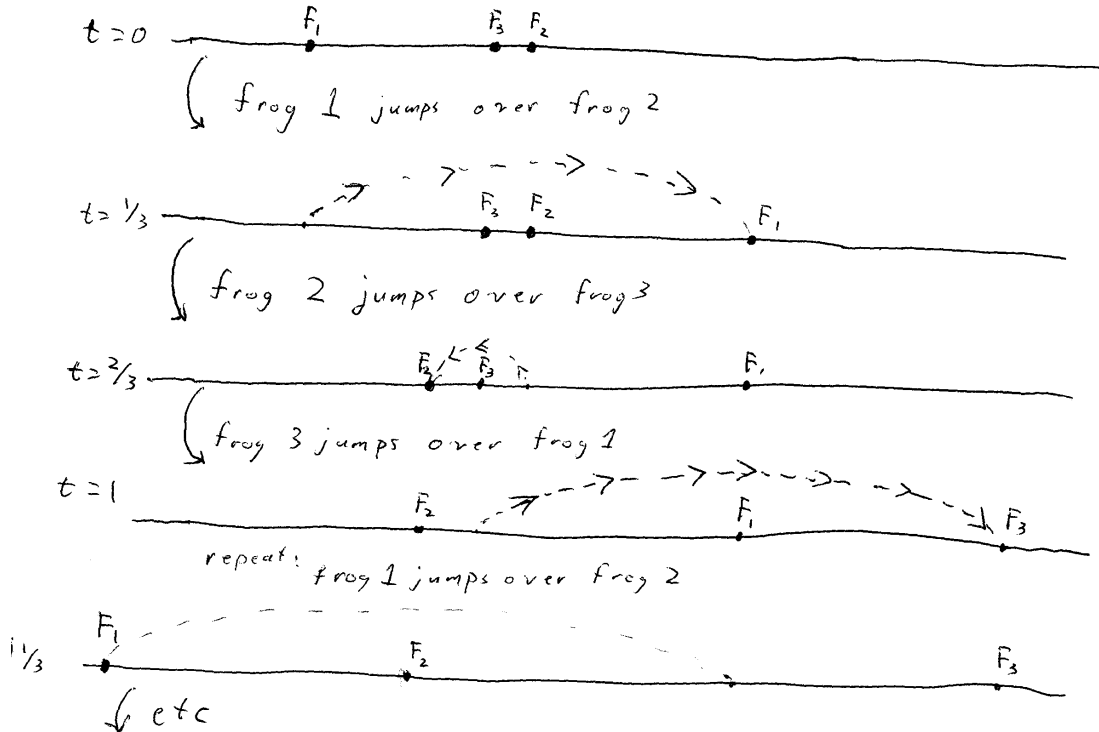 F₁ F₃ F₂
t=0
frog 1 jumps over frog 2
t=1/3 F₃ F₂ F₁
frog 2 jumps over frog 3
t=2/3 F₂ F₃ F₁
frog 3 jumps over frog 1
t=1 F₂ F₁ F₃
repeat: frog 1 jumps over frog 2
F₁ F₂ F₃
1 1/3
etc